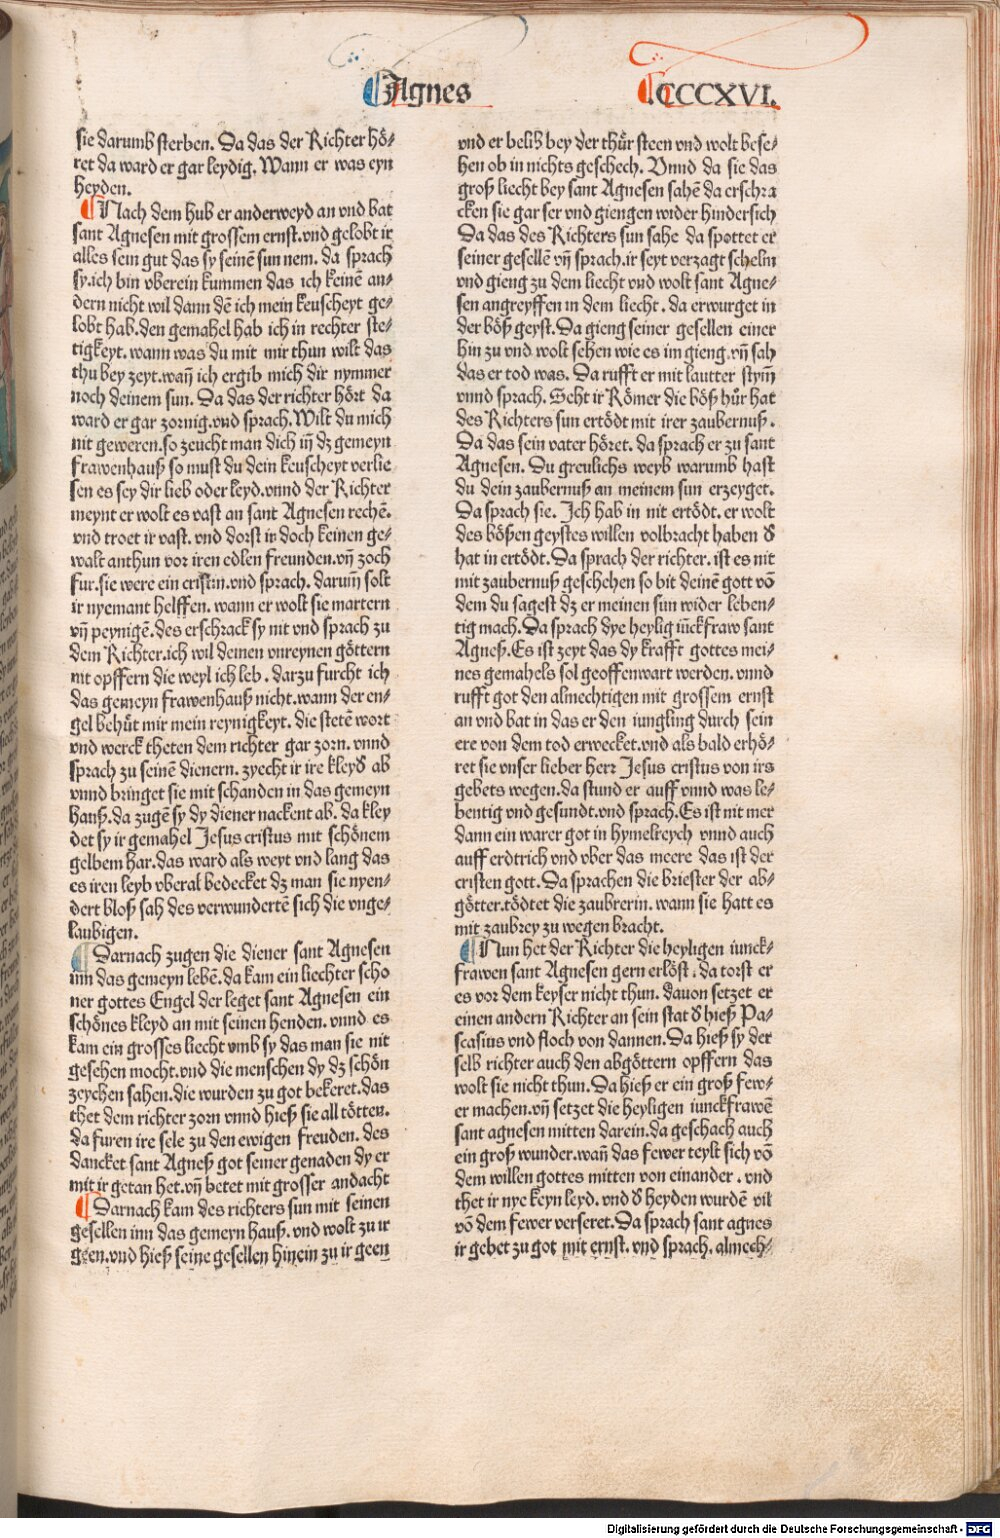 Agnes
CCCXVI.
sie darumb sterben. Da das der Richter hö⸗
ret da ward er gar leydig. Wann er was eyn
heyden.
Nach dem hub er anderweyd an vnd bat
sant Agnesen mit grossem ernst. vnd gelobt ir
alles sein gut das sy seinē sun nem. da sprach
sy. ich bin vberein kummen das ich keinē an⸗
dern nicht wil dann dē ich mein keuscheyt ge⸗
lobt hab. den gemahel hab ich in rechter ste⸗
tigkeyt. wann was du mit mir thun wilt das
thu bey zeyt. wañ ich ergib mich dir nymmer
noch deinem sun. Da das der richter hört da
ward er gar zornig. vnd sprach. Wilt du mich
nit geweren. so zeucht man dich iñ dz gemeyn
frawenhauß so must du dein keuscheyt verlie
sen es sey dir lieb oder leyd. vnnd der Richter
meynt er wolt es vast an sant Agnesen rechē.
vnd troet ir vast. vnd dorst ir doch keinen ge⸗
walt anthun vor iren edlen freunden. vñ zoch
fur. sie were ein cristin. vnd sprach. darum̃ solt
ir nyemant helffen. wann er wolt sie martern
vñ peynigē. des erschrack sy nit vnd sprach zu
dem Richter. ich wil deinen vnreynen göttern
nit opffern die weyl ich leb. darzu furcht ich
das gemeyn frawenhauß nicht. wann der en⸗
gel behůt mir mein reynigkeyt. die stetē wort
vnd werck theten dem richter gar zorn. vnnd
sprach zu seinē dienern. zyecht ir ire kleyd ab
vnnd bringet sie mit schanden in das gemeyn
hauß. da zugē sy dy diener nackent ab. da kley
det sy ir gemahel Jesus cristus mit schönem
gelbem har. das ward als weyt vnd lang das
es iren leyb vberal bedecket dz man sie nyen⸗
dert bloß sah des verwundertē sich die vnge⸗
laubigen.
Darnach zugen die diener sant Agnesen
inn das gemeyn lebē. da kam ein liechter scho
ner gottes Engel der leget sant Agnesen ein
schönes kleyd an mit seinen henden. vnnd es
kam ein grosses liecht vmb sy das man sie nit
gesehen mocht. vnd die menschen dy dz schön
zeychen sahen. die wurden zu got bekeret. das
thet dem richter zorn vnnd hieß sie all tötten.
da furen ire sele zu den ewigen freuden. des
dancket sant Agneß got seiner genaden dy er
mit ir getan het. vñ betet mit grosser andacht
Darnach kam des richters sun mit seinen
gesellen inn das gemeyn hauß. vnd wolt zu ir
geen. vnd hieß seine gesellen hinein zu ir geen
vnd er belib bey der thůr steen vnd wolt bese⸗
hen ob in nichts geschech. Vnnd da sie das
groß liecht bey sant Agnesen sahē da erschra
cken sie gar ser vnd giengen wider hindersich
Da das des Richters sun sahe da spottet er
seiner gesellē vñ sprach. ir seyt verzagt schelm
vnd gieng zu dem liecht vnd wolt sant Agne⸗
sen angreyffen in dem liecht. da erwurget in
der böß geyst. Da gieng seiner gesellen einer
hin zu vnd wolt sehen wie es im gieng. vñ sah
das er tod was. Da rufft er mit lautter stym̃
vnnd sprach. Seht ir Römer die böß hůr hat
des Richters sun ertödt mit irer zaubernuß.
Da das sein vater höret. da sprach er zu sant
Agnesen. Du greulichs weyb warumb hast
du dein zaubernuß an meinem sun erzeyget.
Da sprach sie. Ich hab in nit ertödt. er wolt
des bößen geystes willen volbracht haben ð
hat in ertödt. Da sprach der richter. ist es nit
mit zaubernuß geschehen so bit deinē gott vō
dem du sagest dz er meinen sun wider leben⸗
tig mach. Da sprach dye heylig iūckfraw sant
Agneß. Es ist zeyt das dy krafft gottes mei⸗
nes gemahels sol geoffenwart werden. vnnd
rufft got den almechtigen mit grossem ernst
an vnd bat in das er den iungling durch sein
ere von dem tod erwecket. vnd als bald erhö⸗
ret sie vnser lieber herr Jesus cristus von irs
gebets wegen. da stund er auff vnnd was le⸗
bentig vnd gesundt. vnd sprach. Es ist nit mer
dann ein warer got in hymelreych vnnd auch
auff erdtrich vnd vber das meere das ist der
cristen gott. Da sprachen die briester der ab⸗
götter. tödtet die zaubrerin. wann sie hatt es
mit zaubrey zu wegen bracht.
Nun het der Richter die heyligen iunck⸗
frawen sant Agnesen gern erlöst. da torst er
es vor dem keyser nicht thun. dauon setzet er
einen andern Richter an sein stat ð hieß Pa⸗
scasius vnd floch von dannen. Da hieß sy der
selb richter auch den abgöttern opffern das
wolt sie nicht thun. Da hieß er ein groß few⸗
er machen. vñ setzet die heyligen iunckfrawē
sant agnesen mitten darein. da geschach auch
ein groß wunder. wañ das fewer teylt sich vō
dem willen gottes mitten von einander. vnd
thet ir nye keyn leyd. vnd ð heyden wurdē vil
vō dem fewer verseret. Da sprach sant agnes
ir gebet zu got mit ernst. vnd sprach. almech⸗
Digitalisierung gefördert durch die Deutsche Forschungsgemeinschaft - DFG